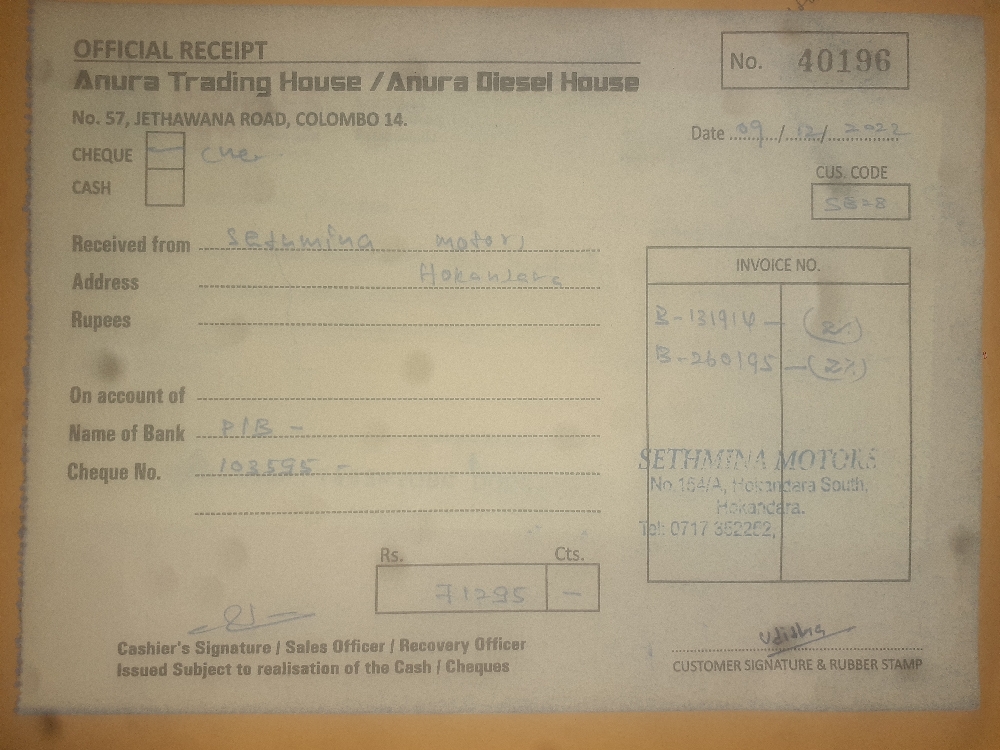 OFFICIAL RECEIPT
No. 40196
Anura Trading House / Anura Diesel House
No. 57, JETHAWANA ROAD, COLOMBO 14.
Date 09 / 12 / 2022
CHEQUE
CASH
CUS. CODE
Received from Sethmina motors
Address Hokandara
Rupees
INVOICE NO.
B-131914 — (2%)
B-260195 — (2%)
On account of
Name of Bank
Cheque No. 103595 -
SETHMINA MOTORS
No.164/A, Hokandara South,
Hokandara.
Tel: 0717 352252,
Rs. Cts.
71295 —
Udisha
Cashier's Signature / Sales Officer / Recovery Officer
Issued Subject to realisation of the Cash / Cheques
CUSTOMER SIGNATURE & RUBBER STAMP